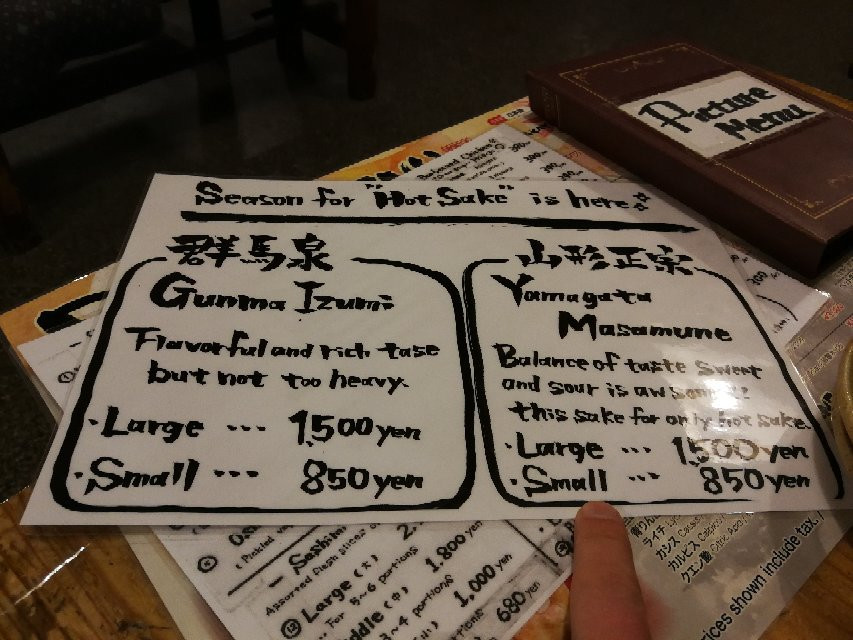 Picture
Menu
Season for "Hot Sake" is here
群馬泉
Gunma Izumi
Flavorful and rich tase
but not too heavy.
・Large … 1,500 yen
・Small … 850 yen
山形正宗
Yamagata
Masamune
Balance of taste sweet
and sour is awsome!!
this sake for only hot sake.
・Large … 1,500 yen
・Small … 850 yen
Sashimi
Assorted fresh slices of
Large (大)
For 5~6 portions
1,800 yen
3~4 portions
1,000 yen
portions
680 yen
ライチ
カシス
カルピス
クエン酸
rices shown include tax.